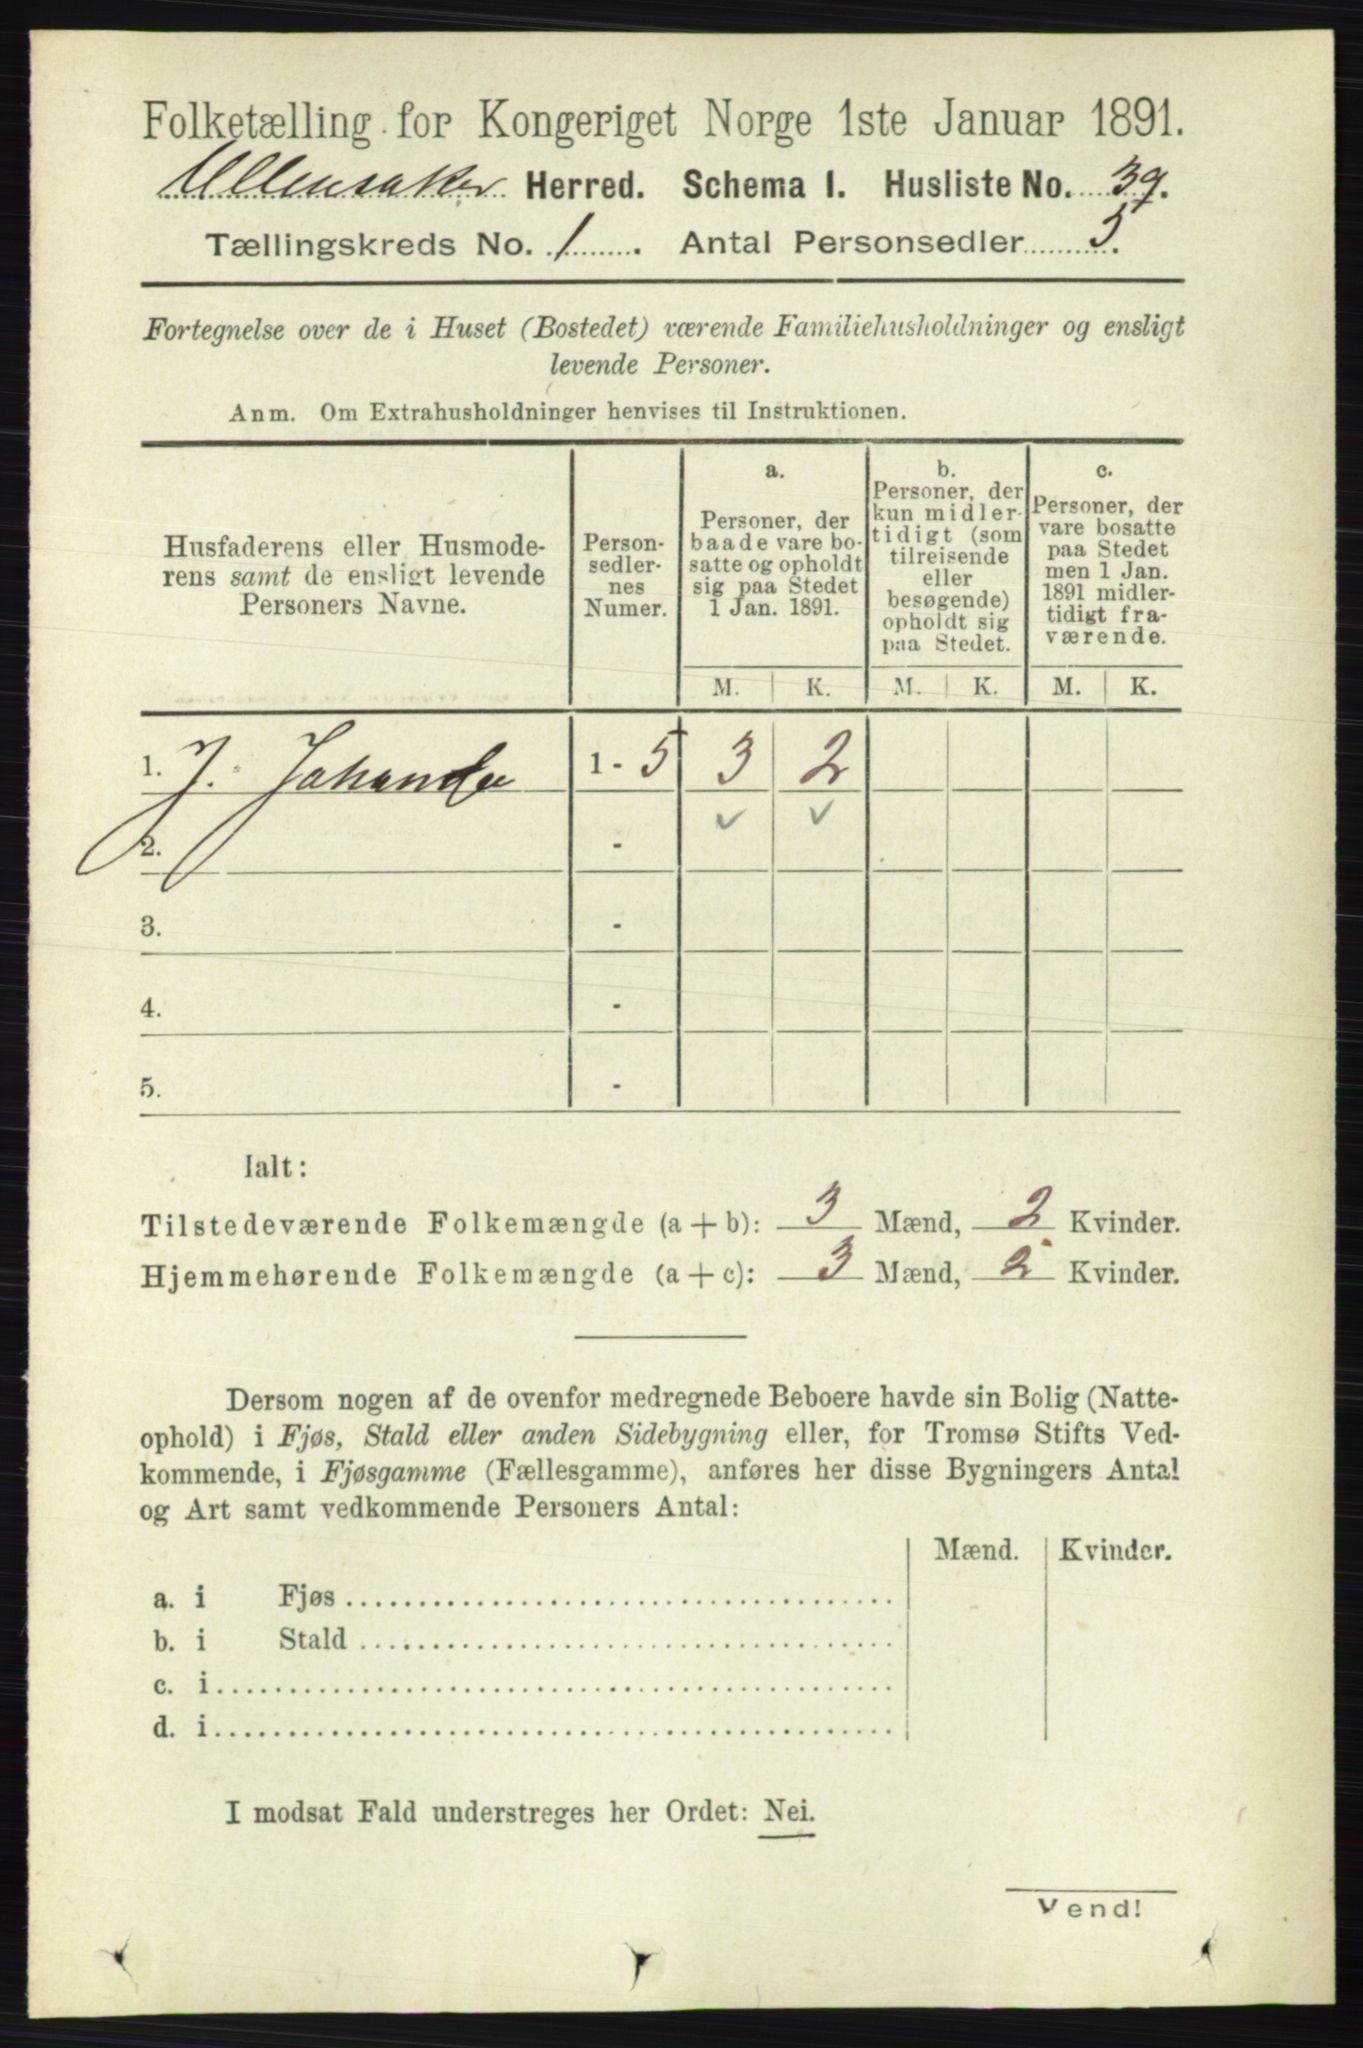 Folketælling for Kongeriget Norge 1ste Januar 1891.
Ullensaker Herred. Schema I. Husliste No. 39.
Tællingskreds No. 1. Antal Personsedler 5.
Fortegnelse over de i Huset (Bostedet) værende Familiehusholdninger og ensligt
levende Personer.
Anm. Om Extrahusholdninger henvises til Instruktionen.
Husfaderens eller Husmode-
rens samt de ensligt levende
Personers Navne.
Person-
sedler-
nes
Numer.
a.
Personer, der
baade vare bo-
satte og opholdt
sig paa Stedet
1 Jan. 1891.
b.
Personer, der
kun midler-
tidigt (som
tilreisende
eller
besøgende)
opholdt sig
paa Stedet.
c.
Personer, der
vare bosatte
paa Stedet
men 1 Jan.
1891 midler-
tidigt fra-
værende.
M. K. M. K. M. K.
1. J. 1 - 5 3 2
2. -
3. -
4. -
5. -
Ialt:
Tilstedeværende Folkemængde (a + b): 3 Mænd, 2 Kvinder.
Hjemmehørende Folkemængde (a + c): 3 Mænd, 2 Kvinder.
Dersom nogen af de ovenfor medregnede Beboere havde sin Bolig (Natte-
ophold) i Fjøs, Stald eller anden Sidebygning eller, for Tromsø Stifts Ved-
kommende, i Fjøsgamme (Fællesgamme), anføres her disse Bygningers Antal
og Art samt vedkommende Personers Antal:
Mænd. Kvinder.
a. i Fjøs
b. i Stald
c. i
d. i
I modsat Fald understreges her Ordet: Nei.
Vend!